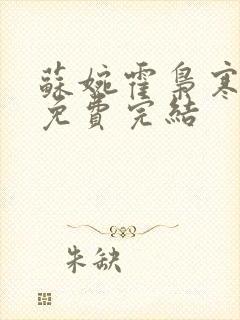 蘇婉霍梟寒
免費完結
朱缺